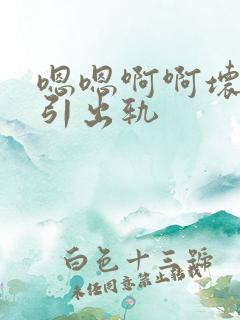 嗯嗯啊啊壞
引出轨
白色十三號
未经同意禁止转载